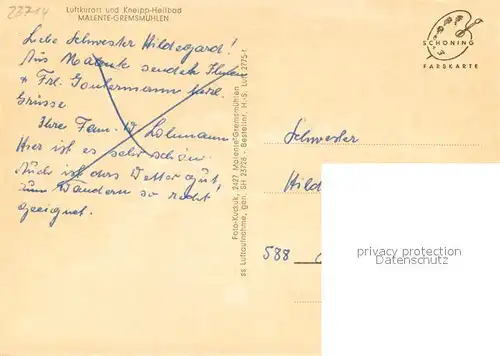 23714
Luftkurort und Kneipp-Heilbad
MALENTE-GREMSMÜHLEN
Liebe Schwester Hildegard!
Aus Malente sendet Ihnen
+ Frl. Gontermann herzl.
Grüsse
Ihre Fam. W. Lohmann
Hier ist es sehr schön.
Auch ist das Wetter gut,
zum Wandern so recht
geeignet.
Foto-Kuckuk, 2427 Malente-Gremsmühlen
ss Luftaufnahme, gen. SH 23728 - Bestellnr. H.-S. Luft 2775 f.
SCHÖNING
FARBKARTE
Schwester
Hild
588
privacy protection
Datenschutz